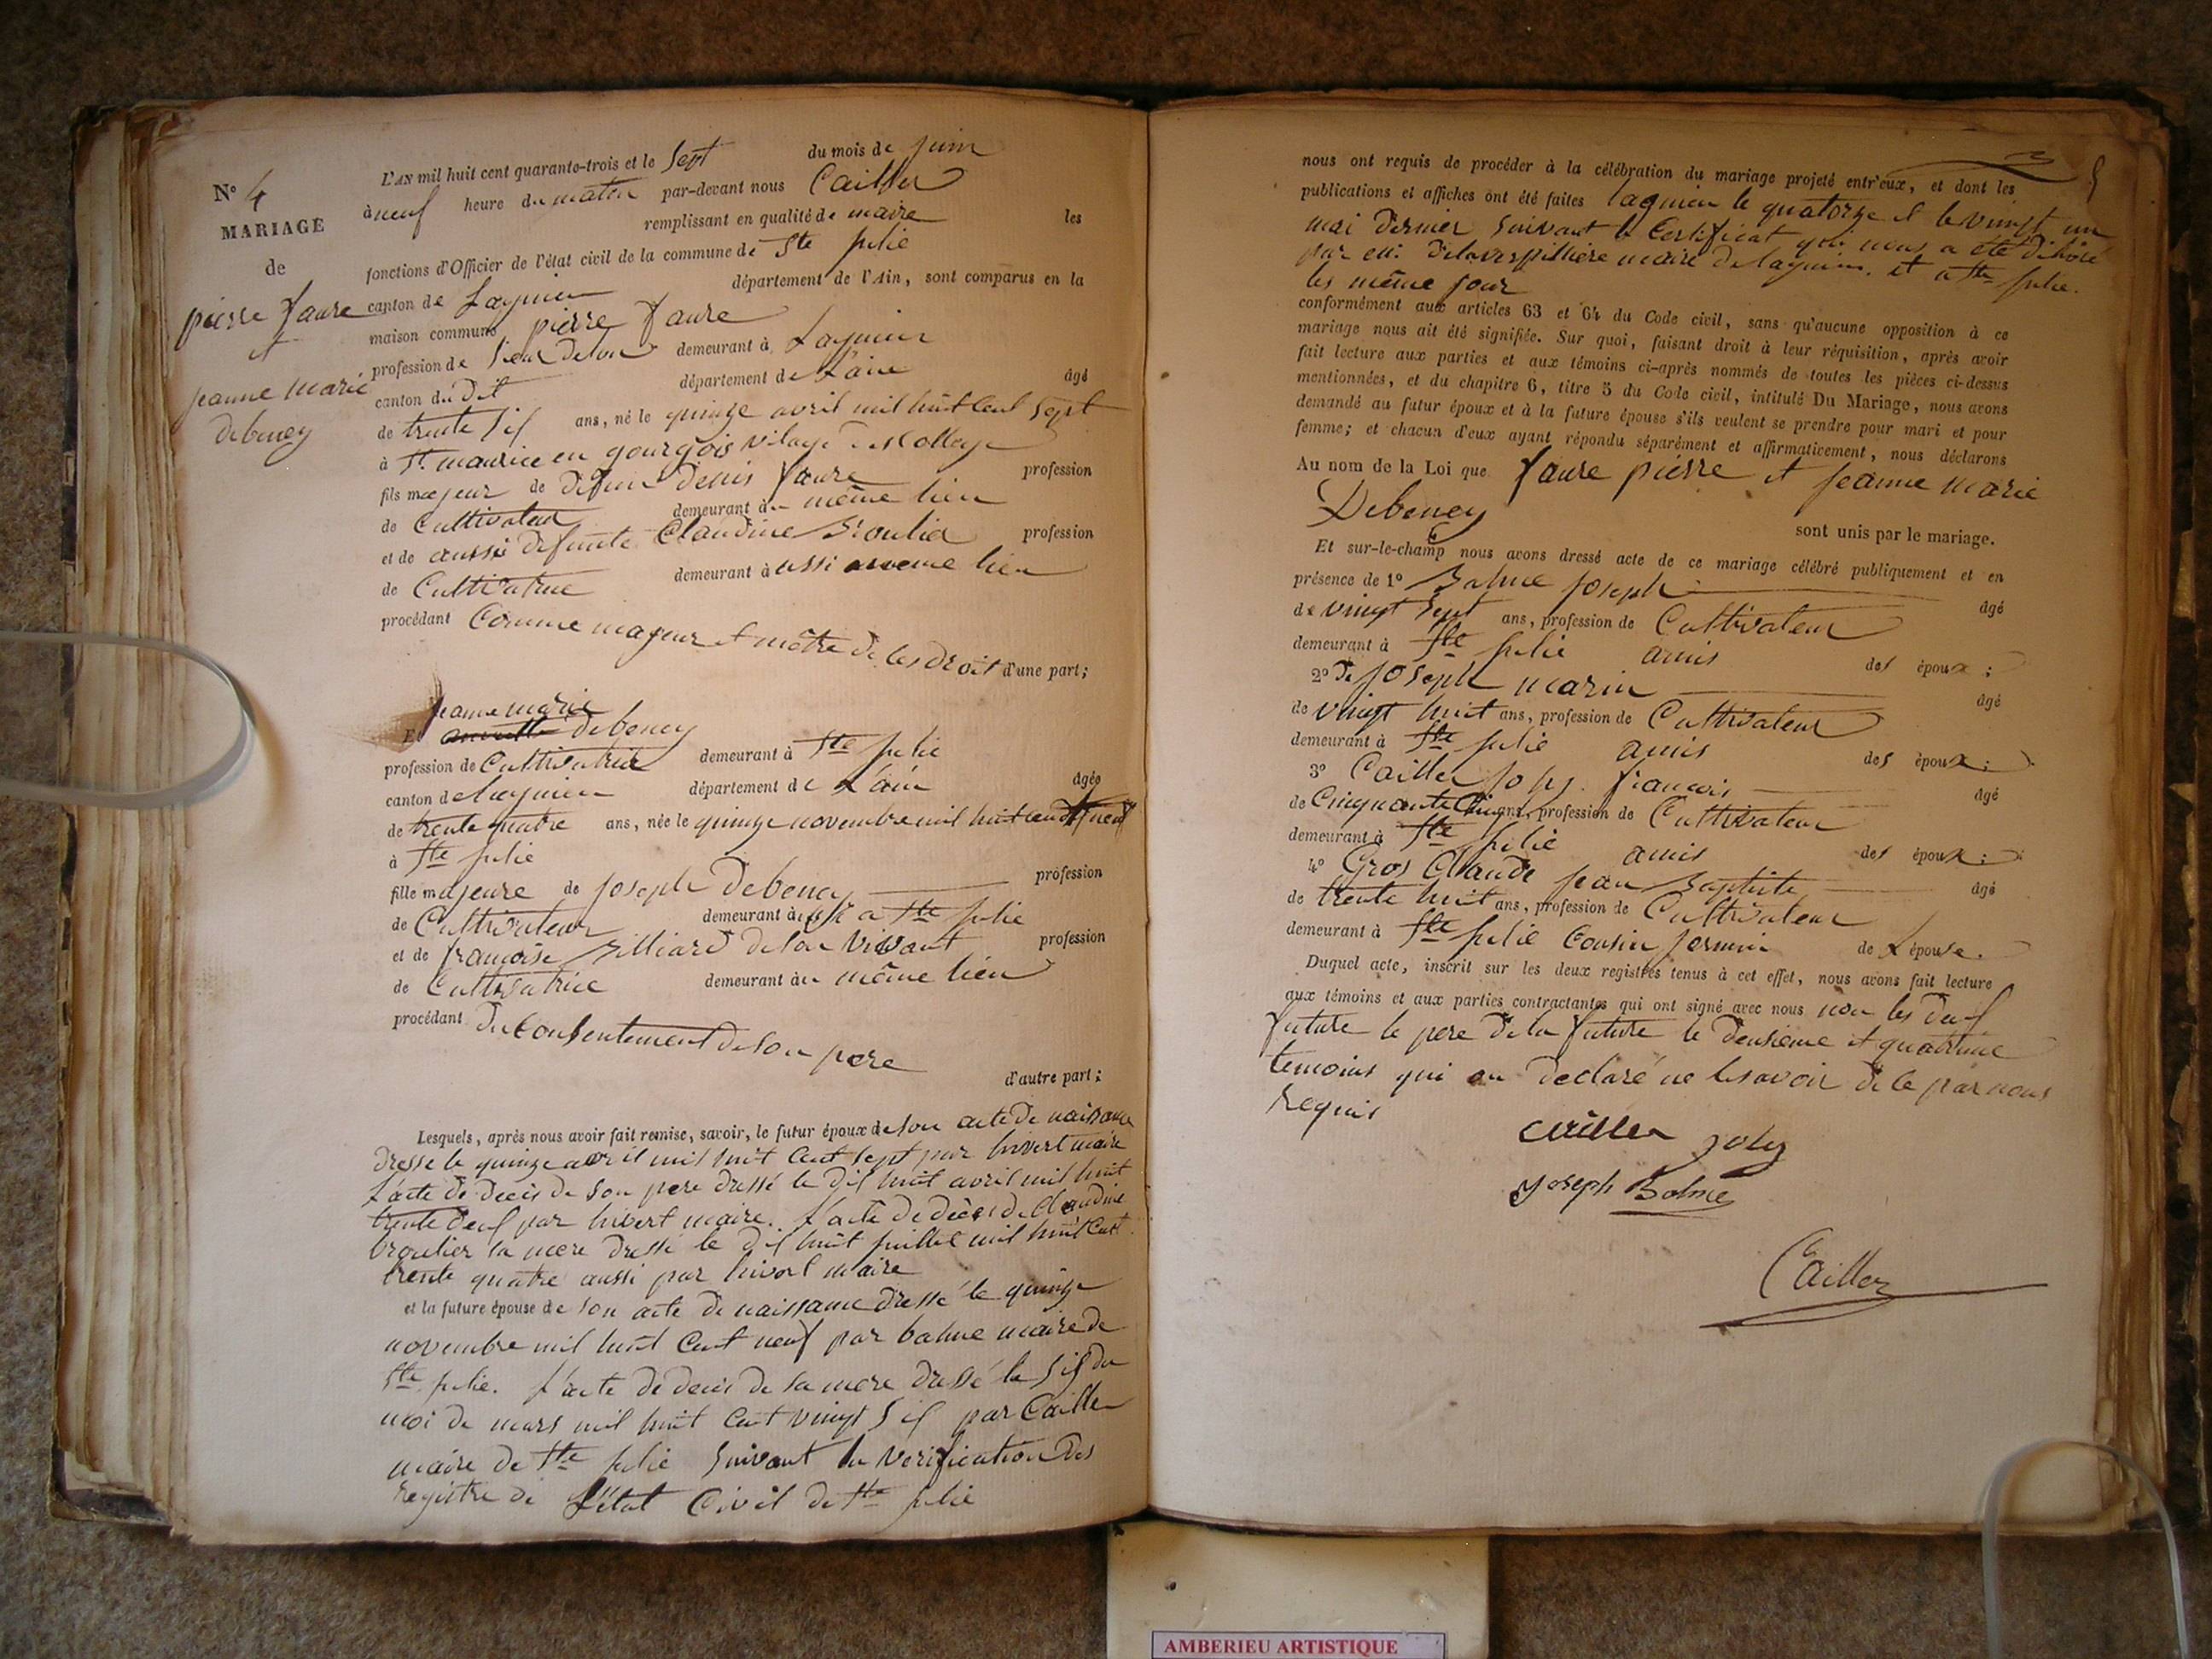 N° 4
MARIAGE
de
pierre faure
et
jeanne marie
debeney
L'AN mil huit cent quarante-trois et le sept du mois de juin
à neuf heure du matin par-devant nous Cailler
remplissant en qualité de maire les
fonctions d'Officier de l'état civil de la commune de Ste julie
canton de Lagnieu département de l'Ain, sont comparus en la
maison commune pierre faure
profession de demeurant à Lagnieu
canton du dit département de L'ain âgé
de trente six ans, né le quinze avril mil huit cent sept
à St maurice en gourgois vilage
fils majeur de defun denis faure profession
de Cultivateur demeurant au même lieu
et de aussi defunte Claudine profession
de Cultivatrice demeurant à ussi au meme lieu
procédant Comme majeur et mêtre de ces droit d'une part;
jeanne marie
Et debeney
profession de Cultivatrice demeurant à Ste julie
canton de Lagnieu département de L'ain âgée
de trente quatre ans, née le quinze novembre mil huit cent neuf
à Ste julie
fille majeure de joseph Debeney profession
de Cultivateur demeurant à ussi a Ste julie
et de françoise Billiard de son vivant profession
de Cultivatrice demeurant au même lieu
procédant du Consentement de son pere
d'autre part;
Lesquels, après nous avoir fait remise, savoir, le futur époux de son acte de naissance
dressé le quinze avril mil huit cent sept par hivert maire
L'acte de décés de son pere dressé le dix huit avril mil huit
trente deux par hivert maire. L'acte de décès de Claudine
sa mere dressé le dix huit juillet mil huit Cent
trente quatre aussi par hivert maire
et la future épouse de son acte de naissance dressé le quinze
novembre mil huit Cent neuf par balme maire de
Ste julie. L'acte de deces de sa mere dressé le six du
moi de mars mil huit Cent vingt six par Cailler
maire de Ste julie suivant la verification des
registre de L'état Civil de Ste julie
nous ont requis de procéder à la célébration du mariage projeté entr'eux, et dont les
publications et affiches ont été faites lagnieu le quatorze et le vingt un
mai dernier suivant le Certificat qui nous a été délivré
par mr. Delaverpilliere maire de lagnieu. et a Ste julie.
les même jour
conformément aux articles 63 et 64 du Code civil, sans qu'aucune opposition à ce
mariage nous ait été signifiée. Sur quoi, faisant droit à leur réquisition, après avoir
fait lecture aux parties et aux témoins ci-après nommés de toutes les pièces ci-dessus
mentionnées, et du chapitre 6, titre 5 du Code civil, intitulé Du Mariage, nous avons
demandé au futur époux et à la future épouse s'ils veulent se prendre pour mari et pour
femme; et chacun d'eux ayant répondu séparément et affirmativement, nous déclarons
Au nom de la Loi que faure pierre et jeanne marie
Debeney
sont unis par le mariage.
Et sur-le-champ nous avons dressé acte de ce mariage célébré publiquement et en
présence de 1° Balme joseph âgé
de vingt sept ans, profession de Cultivateur
demeurant à Ste julie amis des époux;
2° de joseph marin âgé
de vingt huit ans, profession de Cultivateur
demeurant à Ste julie amis des époux;
3° Cailler françois âgé
de Cinquante Cinq ans, profession de Cultivateur
demeurant à Ste julie amis des époux;
4° Gros Claude jean Baptiste âgé
de trente huit ans, profession de Cultivateur
demeurant à Ste julie Cousin jermin de L'épouse.
Duquel acte, inscrit sur les deux registres tenus à cet effet, nous avons fait lecture
aux témoins et aux parties contractantes qui ont signé avec nous non les deux
future le pere de la future le deusieme et quatrieme
temoins qui on declaré ne le savoir de ce par nous
requis
Cailler
Joseph Balme
Cailler
AMBERIEU ARTISTIQUE